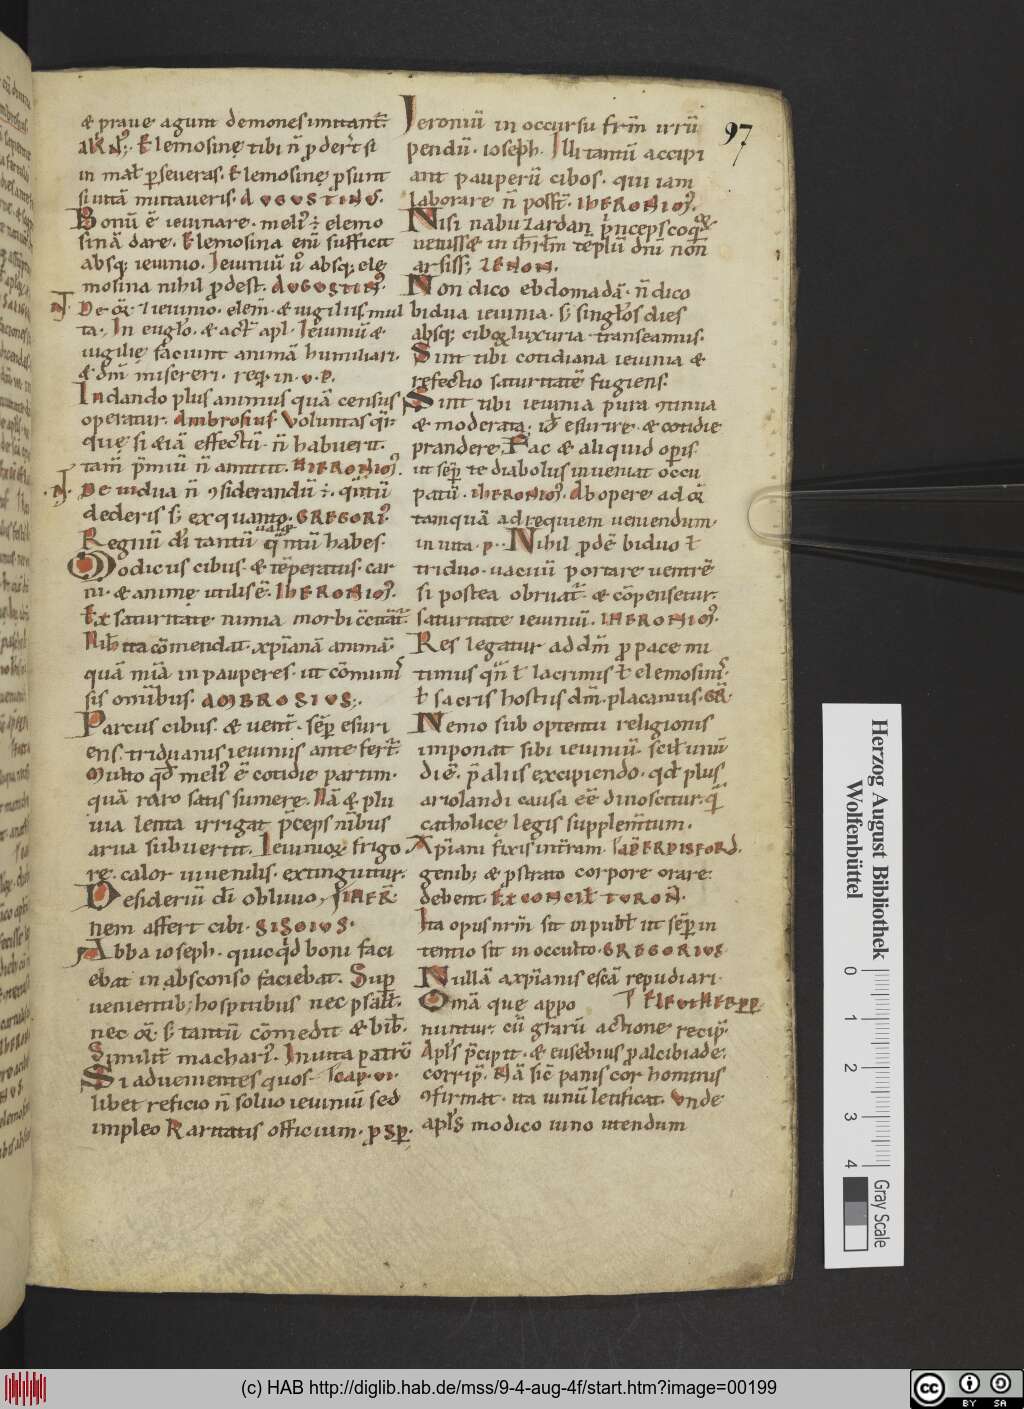 & praue agunt demones imitant̄.
Elemosinę tibi n̄ ꝓder̄t si
in mał ꝑseueras. Elemosinę ꝓsunt
si uitā mutaueris. AUGUSTINUS.
Bonū ē ieiunare. meli᷒ ÷ elemo
sinā dare. Elemosina eni᷒ sufficit
absq; ieiunio. Ieiuniū u᷒o absq; ele
mosina nihil ꝓdest. AUGUSTIN᷒.
De or̄ ⁊ ieiunio. elem̄. & uigiliis mul
ta. In euglo. & act᷒ apl. Ieiuniū &
uigilię faciunt animā humiliari.
& dm̄ misereri. req̄. in. v. P.
In dando plus animus quā census
operatur. Ambrosius. Voluntas q̄i
quę si &iā effectū n̄ habuerit.
tam̄ p̄miū n̄ amittit. HIERONIO᷒.
De uidua n̄ ꝯsiderandū ÷. q̄ntū
dederis s; ex quanto. GREGORI᷒.
uał &
Regnū di᷒ tantū q̄ntū habes.
Modicus cibus. & tēperatus. car
ni. & animę utilis ē. IHERONIO᷒.
Ex saturitate nimia morbi c̄citāt̄.
Nił ita cōmendat. xp̄ianā animā.
quā mi᷒a in pauperes. ut cōmuni᷒
sis omībus. AMBROSIUS:.
Parcus cibus. & uent᷒. sēꝑ esuri
ens. triduanis ieiuniis antefert̄.
Multo qd̄ meli᷒ ē cotidie parum.
quā raro satis sumere. Nā & plu
uia lenta irrigat p̄ceps nībus
arua subuertit. Ieiunioꝝ frigo
re. calor iuuenilis. extinguitur.
Desideriū di᷒ obliuio,
nem affert cibi. SISOIUS.
Abba ioseph. quicqd̄ boni faci
ebat in absconso faciebat. Suꝑ
uenientib; hospitibus nec psall̄.
nec or̄. s; tantū cōmedit & bib̄.
Similit̄ machari᷒. In uita patrū
Si aduenientes quos- CAP. VI.
libet reficio n̄ soluo ieiuniū sed
impleo karitatis officium. ꝓsꝑ.
97
Ieroniū in occursu frm̄ irrū
pendū. ioseph. Illi tantū accipi
ant pauperū cibos. qui iam
laborare n̄ possr̄. IHERONIO᷒.
Nisi nabuzardan p̄nceps coq̄
uenisset in ih̄rłm templū dni᷒ non̄
arsiss; ZENON.
Non dico ebdomadā. n̄ dico
bidua ieiunia. s; singłos dies
absq; ciboꝝ luxuria transeamus.
Sint tibi cotidiana ieiunia &
refectio saturitatē fugiens.
Sint tibi ieiunia pura ꝯtinua
& moderata; id̄ esurire. & cotidie
prandere. Fac & aliquid opis᷒
ut sēꝑ te diabolus inueniat occu
patū. IHERONIO᷒. Ab opere ad or̄
tamquā ad requiem ueniendum.
in uita. p.. Nihil ꝓdē biduo ł
triduo. uacuū portare uentrē
si postea obruat̄. & cōpensetur.
saturitate ieiuniū. IHERONIO᷒.
Res legatur ad dm̄ ꝓ pace mi
timus qn̄ ł lacrimis ł elemosini᷒.
ł sacris hostiis dm̄. placamus. GR̄.
Nemo sub optentu religionis
imponat sibi ieiuniū. scił unū
diē. p̄ aliis excipiendo. qd̄ plus
ariolandi causa eē dinoscitur. q̄
catholicę legis supplem̄tum.
Xp̄iani fixis in t̄ram.
genib; & ꝓstrato corpore orare.
debent. EX CONCIŁ TURON̄.
Ita opus nr̄m sit in publ̄ ut sēꝑ in
tentio sit in occulto. GREGORIUS.
Nullā a xp̄ianis escā repudiari.
Omā que appo
nuntur. cū grarū actione recip̄.
Apl's p̄cipit. & eusebius ꝓ alcibiade.
corrip̄. Nā sic̄ panis cor hominis
ꝯfirmat. ita uinū letificat. Vnde
apl's modico uino utendum
Herzog August Bibliothek
Wolfenbüttel
0 1 2 3 4
Gray Scale
(c) HAB http://diglib.hab.de/mss/9-4-aug-4f/start.htm?image=00199
cc BY SA